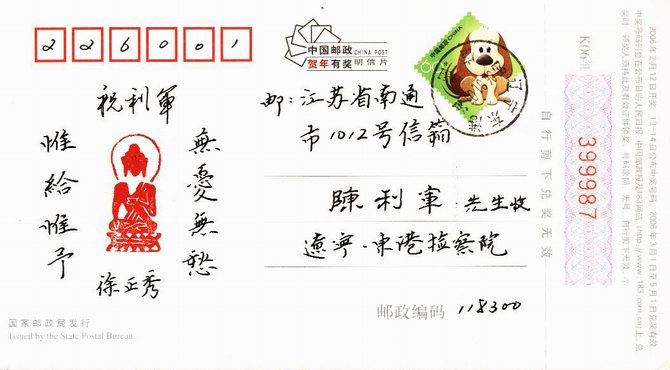 226001
中国邮政 CHINA POST
贺年有奖 明信片
中国邮政 CHINA
祝利軍
惟給惟予
無憂無愁
徐正秀
邮：江苏省南通
市1012号信箱
陳利軍 先生收
遼寧·東港捡察院
邮政编码 118300
国家邮政局发行
Issued by the State Postal Bureau
自行剪下兑奖无效
K06组
399987
2006年2月12日开奖